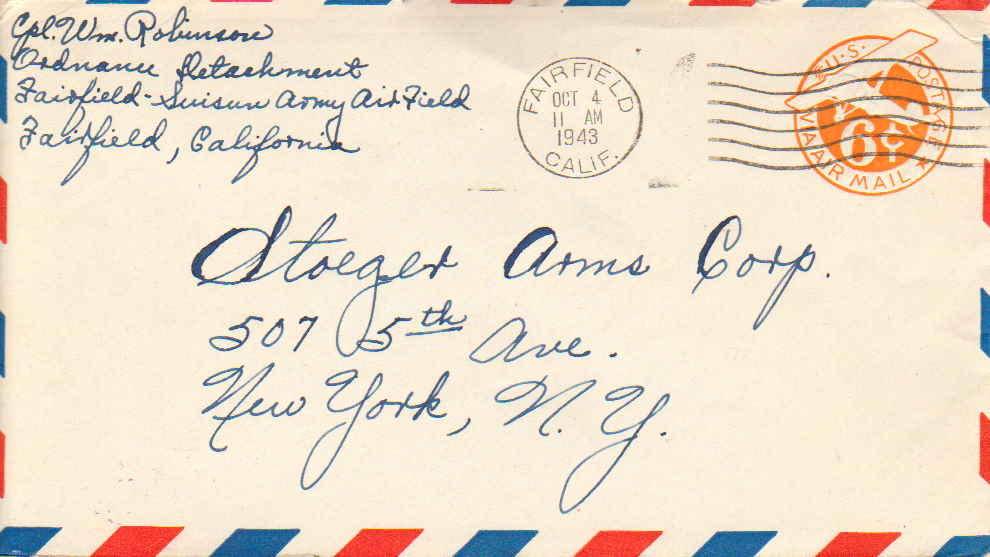 Cpl. Wm. Robinson
Ordnance Detachment
Fairfield-Suisun Army Air Field
Fairfield, California
FAIRFIELD
OCT 4
11 AM
1943
CALIF.
U.S. POSTAGE
6¢
VIA AIR MAIL
Stoeger Arms Corp.
507 5th Ave.
New York, N.Y.